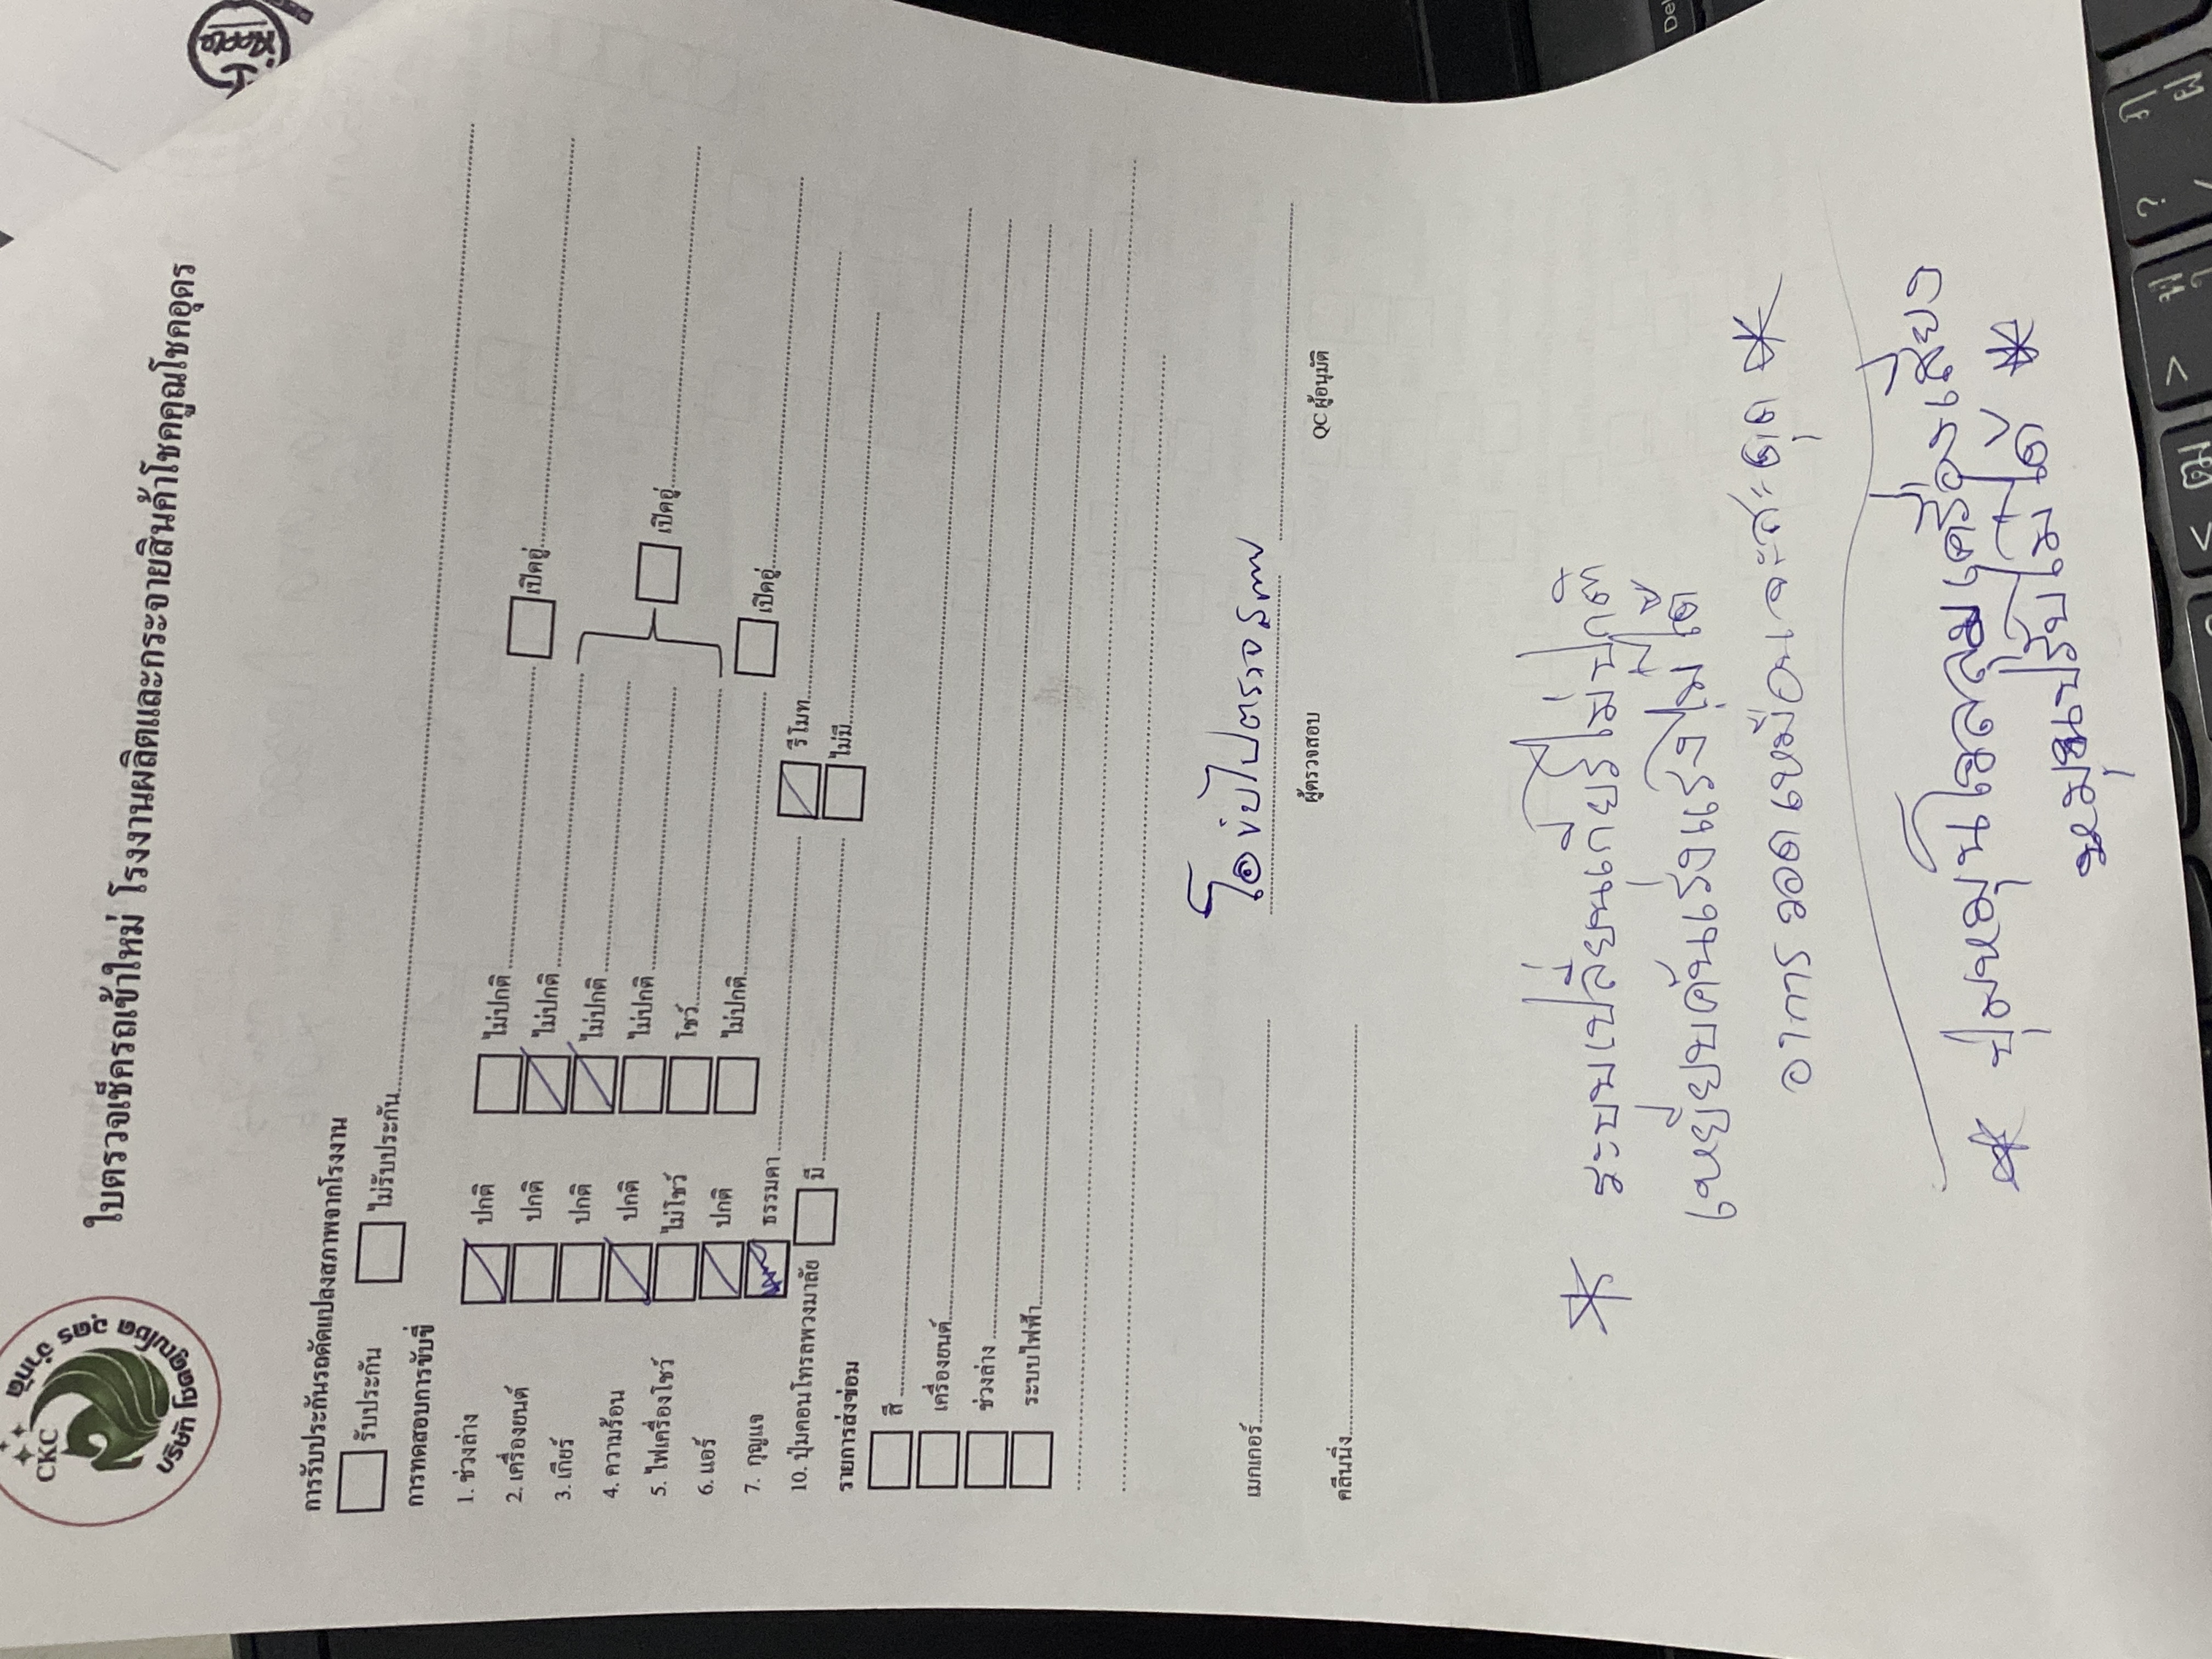 บริษัท โชคคูณโชค อุดร จำกัด
CKC
ใบตรวจเช็ครถเข้าใหม่ โรงงานผลิตและกระจายสินค้าโชคคูณโชคอุดร
การรับประกันรถดัดแปลงสภาพจากโรงงาน
รับประกัน ไม่รับประกัน
การทดสอบการขับขี่
1. ช่วงล่าง ปกติ ไม่ปกติ เปิดอู่
2. เครื่องยนต์ ปกติ ไม่ปกติ
3. เกียร์ ปกติ ไม่ปกติ
4. ความร้อน ปกติ ไม่ปกติ เปิดอู่
5. ไฟเครื่องโชว์ ไม่โชว์ โชว์
6. แอร์ ปกติ ไม่ปกติ เปิดอู่
7. กุญแจ ธรรมดา รีโมท
10. ปุ่มคอนโทรลพวงมาลัย มี ไม่มี
รายการส่งซ่อม
สี
เครื่องยนต์
ช่วงล่าง
ระบบไฟฟ้า
โอ
เมกเกอร์ ผู้ตรวจสอบ QC ผู้อนุมัติ
คลีนนิ่ง
* ระบบเปลี่ยนเกียร์ไม่ปกติ
เหยียบคันเร่งแรงไม่ได้
อาการ วอดเหมือนจะสะดุด *
* ปุ่มหมุนโวลลุ่มเครื่องเสียง
หมุนปรับไม่ได้ *
Del
?
>
<